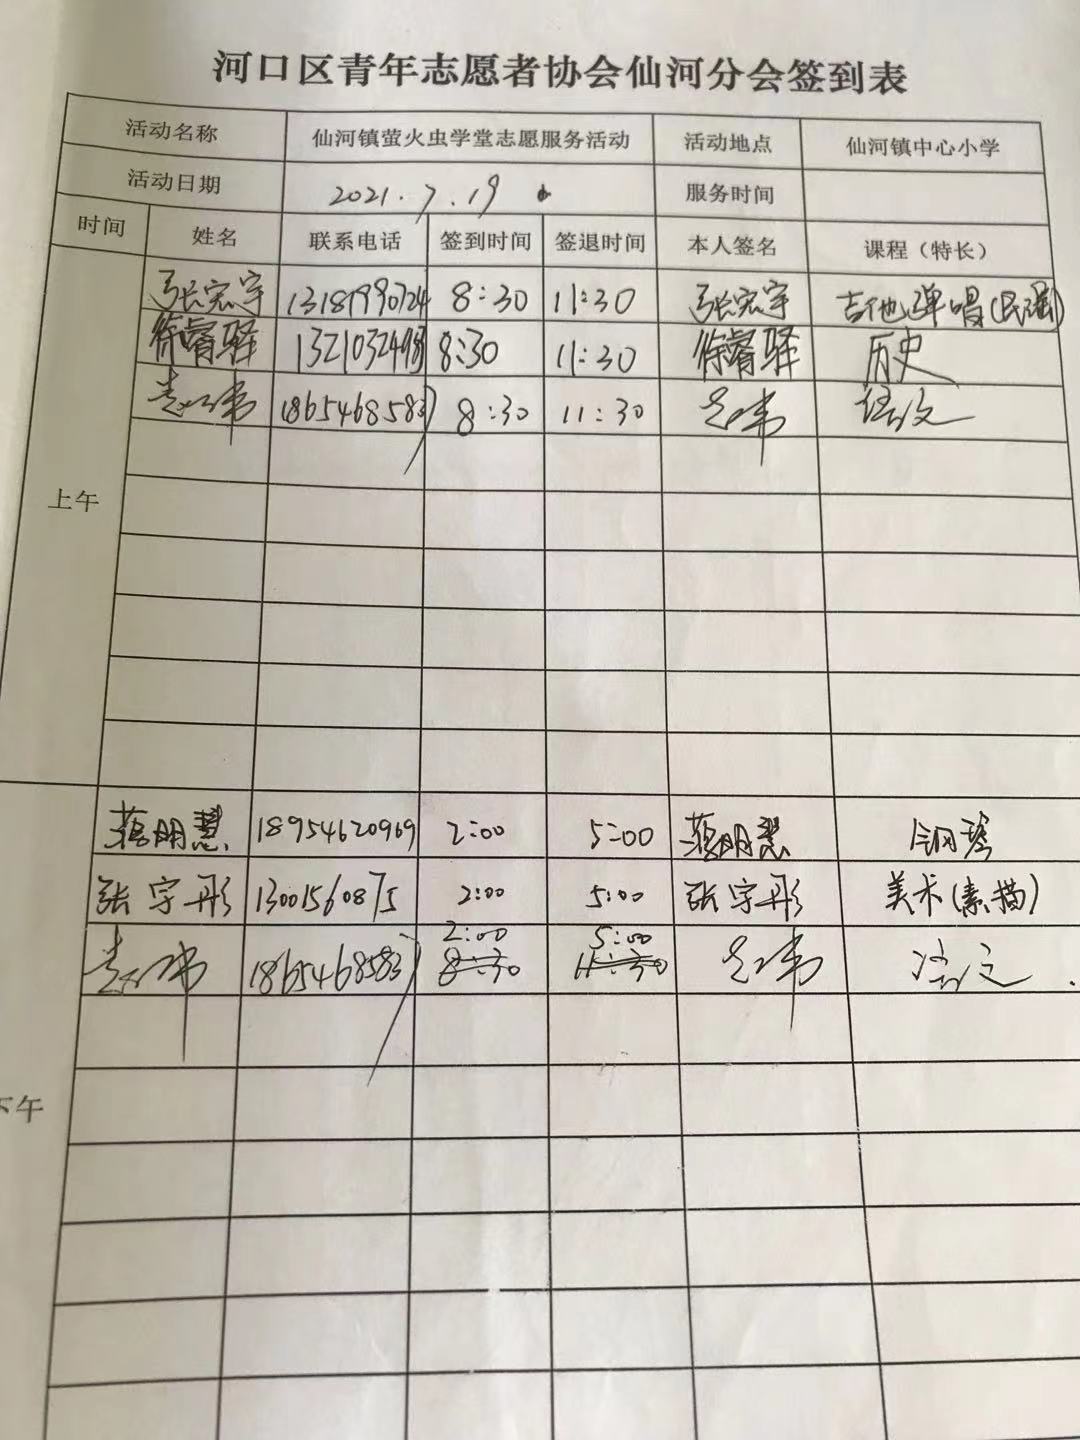 河口区青年志愿者协会仙河分会签到表
活动名称 仙河镇萤火虫学堂志愿服务活动 活动地点 仙河镇中心小学
活动日期 2021.7.19 服务时间
时间 姓名 联系电话 签到时间 签退时间 本人签名 课程（特长）
上午
张宏宇 13181990724 8:30 11:30 张宏宇 吉他弹唱(民谣)
徐睿驿 8:30 11:30 徐睿驿 历史
18654685837 8:30 11:30 语文
下午
蒋明慧 18954620969 2:00 5:00 蒋明慧 钢琴
张字彤 13001560875 2:00 5:00 张字彤 美术(素描)
2:00 5:00
18654685837 8:30 11:30 语文